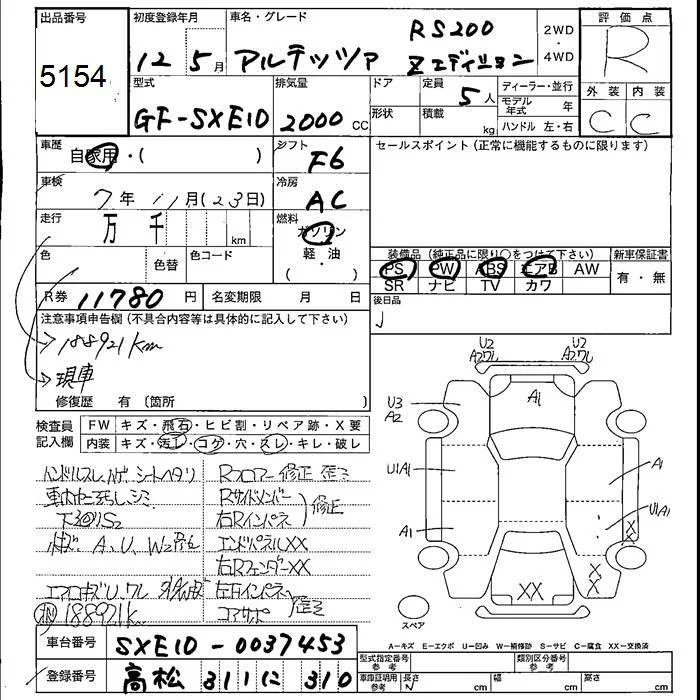 出品番号
5154
初度登録年月
12 5月
車名・グレード
アルテッツァ
RS200
Zエディション
2WD
・
4WD
評価点
R
型式
GF-SXE10
排気量
2000 CC
ドア
形状
定員
5人
積載
kg
ディーラー・並行
モデル年式 年
ハンドル 左・右
外装 内装
C C
車歴
自家用・( )
シフト
F6
セールスポイント(正常に機能するものに限ります)
車検
7年 11月(23日)
冷房
AC
走行
万 千 km
燃料
ガソリン
軽・油
( ・ )
色
色替
色コード
装備品(純正品に限り○をつけて下さい)
PS PW ABS エアB AW
SR ナビ TV カワ
新車保証書
有・無
R券 11780 円
名変期限 月 日
後日品
注意事項申告欄(不具合内容等は具体的に記入して下さい)
188921km
現車
修復歴 有〔箇所 〕
検査員
記入欄
FW キズ・飛石・ヒビ割・リペア跡・X要
内装 キズ・汚れ・コゲ・穴・スレ・キレ・破レ
ハンドルスレ シートヘタリ
シミ
下廻りS2
A、U、W2
エアロキズU、ワレ
188921k
Rフロアー修正 歪ミ
Rサイドメンバー
右Rインパネ
修正
エンドパネルXX
右RフェンダーXX
左右インパネ
コアサポ
歪ミ
U2
A2ワレ
U2
A2ワレ
A1
U3
A2
U1A1
A1
A1
U1A1
X
X
X
X
XX
スペア
A=キズ E=エクボ U=凹み W=補修跡 S=サビ C=腐食 XX=交換済
車台番号
SXE10-0037453
登録番号
高松 311 に 310
型式指定番号
参考
類別区分番号
参考
車庫証明用
参考
長さ cm
幅 cm
高さ cm